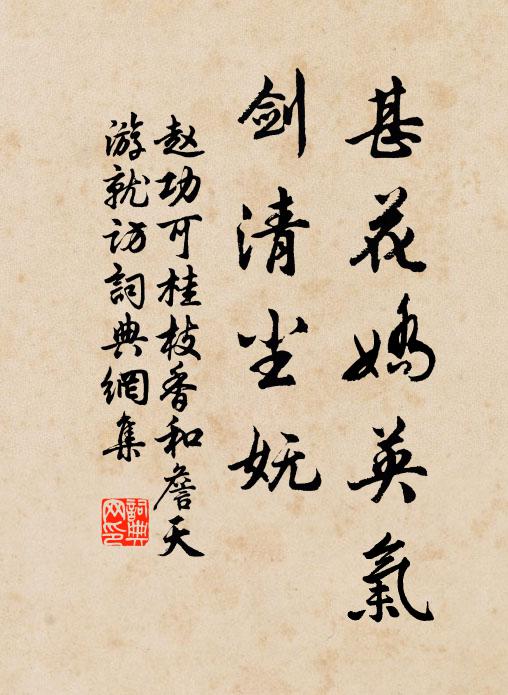 甚花娇英氣
剑清尘妩
赵功可桂枝香和詹天
游就访詞典網集
詞典网印